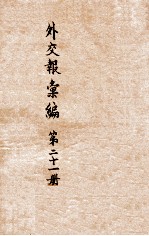 外交報彙編
第二十一册